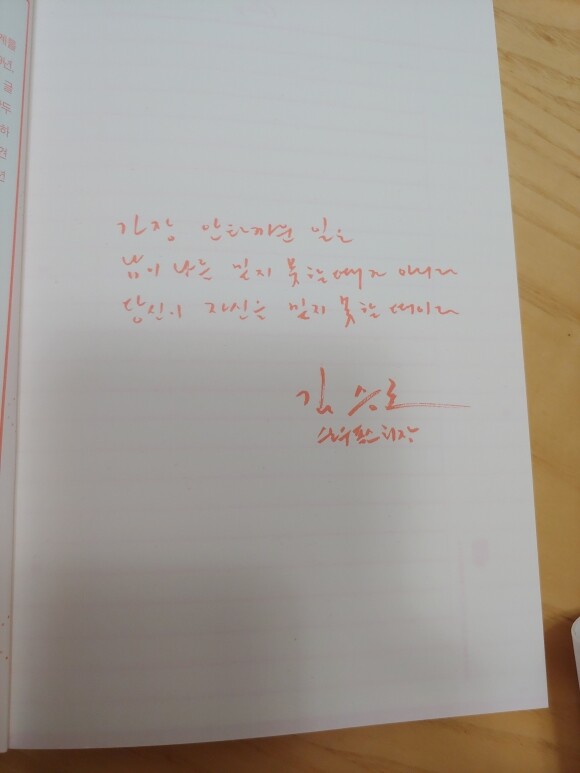 글
하
가장 안타까운 일은
남이 나를 믿지 못할 때가 아니라
당신이 자신을 믿지 못할 때이다
김승호
스노우폭스회장